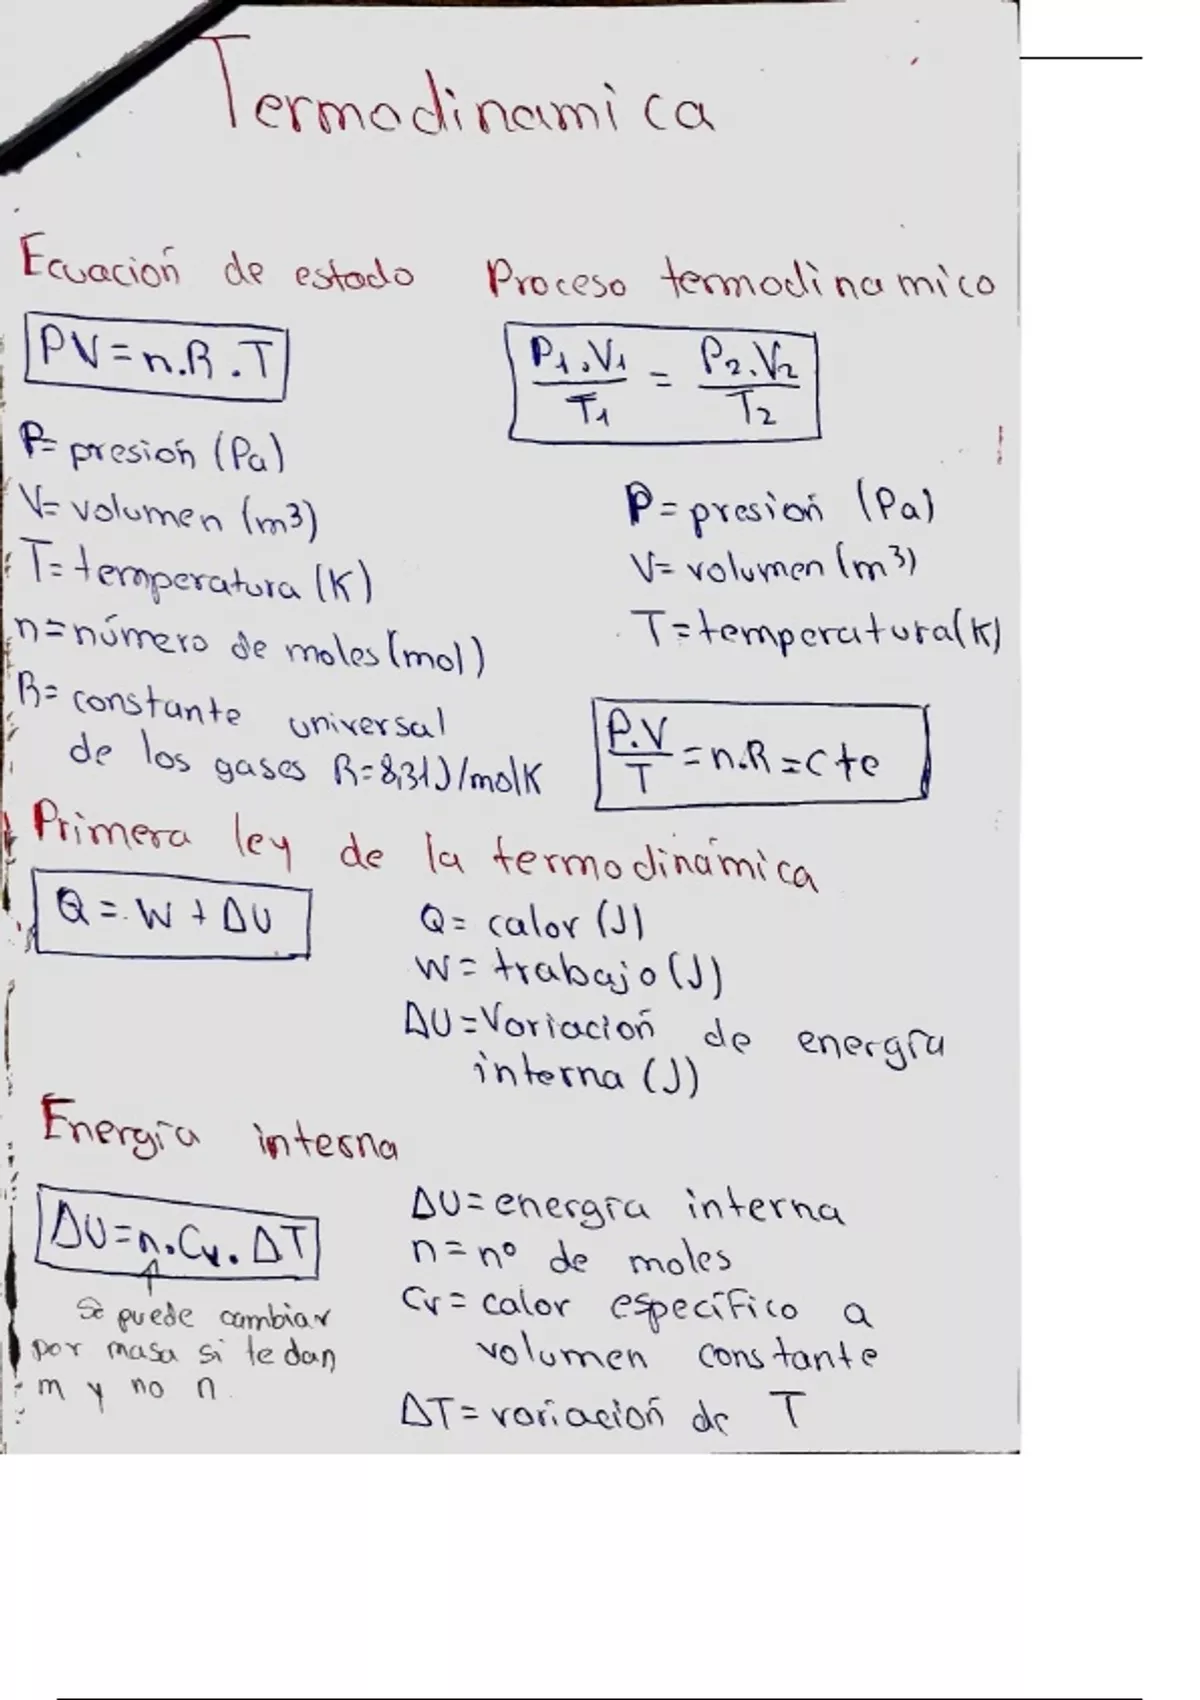 Termodinamica
Ecuación de estado
PV=n.R.T
P= presión (Pa)
V= volumen (m3)
T= temperatura (K)
n=número de moles (mol)
R= constante universal
de los gases R=8,31J/molK
Proceso termodinamico
P1.V1/T1 = P2.V2/T2
P=presión (Pa)
V= volumen (m3)
T=temperatura(K)
P.V/T = n.R=cte
Primera ley de la termodinámica
Q = W + ΔU
Q= calor (J)
W= trabajo (J)
ΔU=Variación de energía
interna (J)
Energía interna
ΔU=n.Cv.ΔT
Se puede cambiar
por masa si te dan
m y no n
ΔU=energía interna
n=nº de moles
Cv= calor específico a
volumen constante
ΔT= variación de T